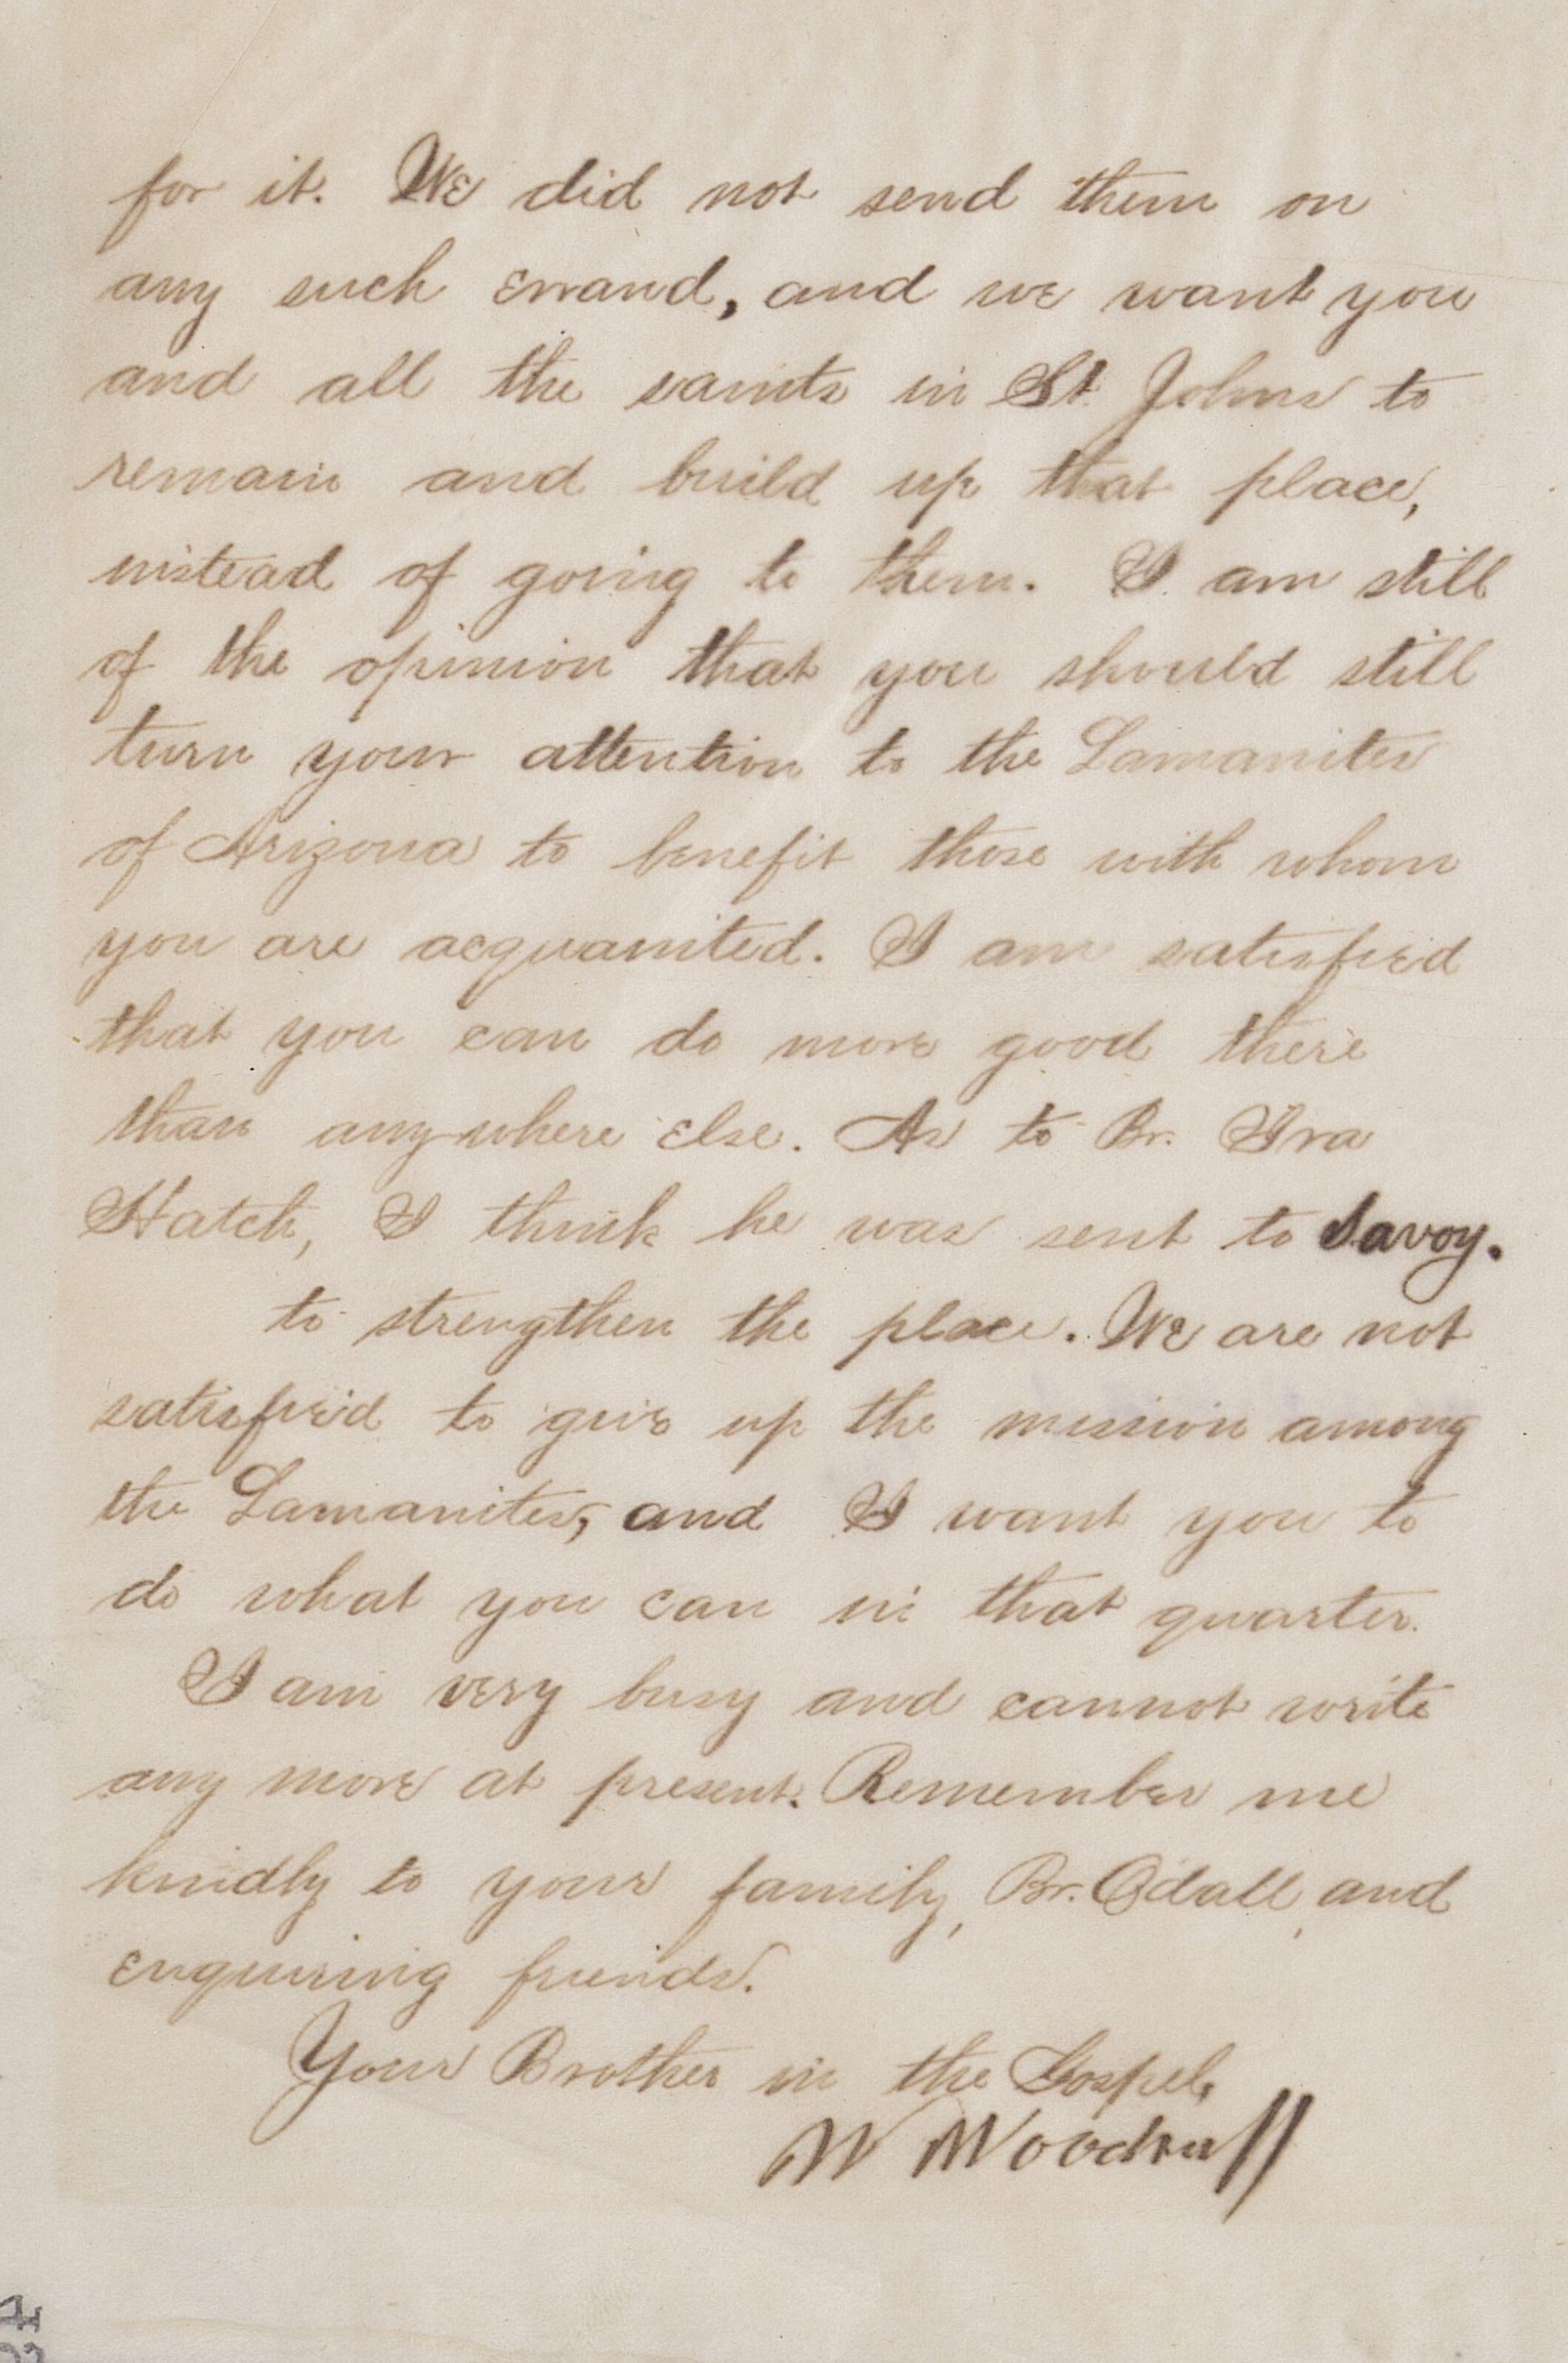 for it. We did not send them on
any such errand, and we want you
and all the saints in St. Johns to
remain and build up that place,
instead of going to them. I am still
of the opinion that you should still
turn your attention to the Lamanites
of Arizona to benefit those with whom
you are acquainted. I am satisfied
that you can do more good there
than anywhere else. As to Br. Ira
Hatch, I think he was sent to Savoy.
to strengthen the place. We are not
satisfied to give up the mission among
the Lamanites, and I want you to
do what you can in that quarter.
I am very busy and cannot write
any more at present. Remember me
kindly to your family, Br. Odall, and
enquiring friends.
Your Brother in the Gospel,
W Woodruff